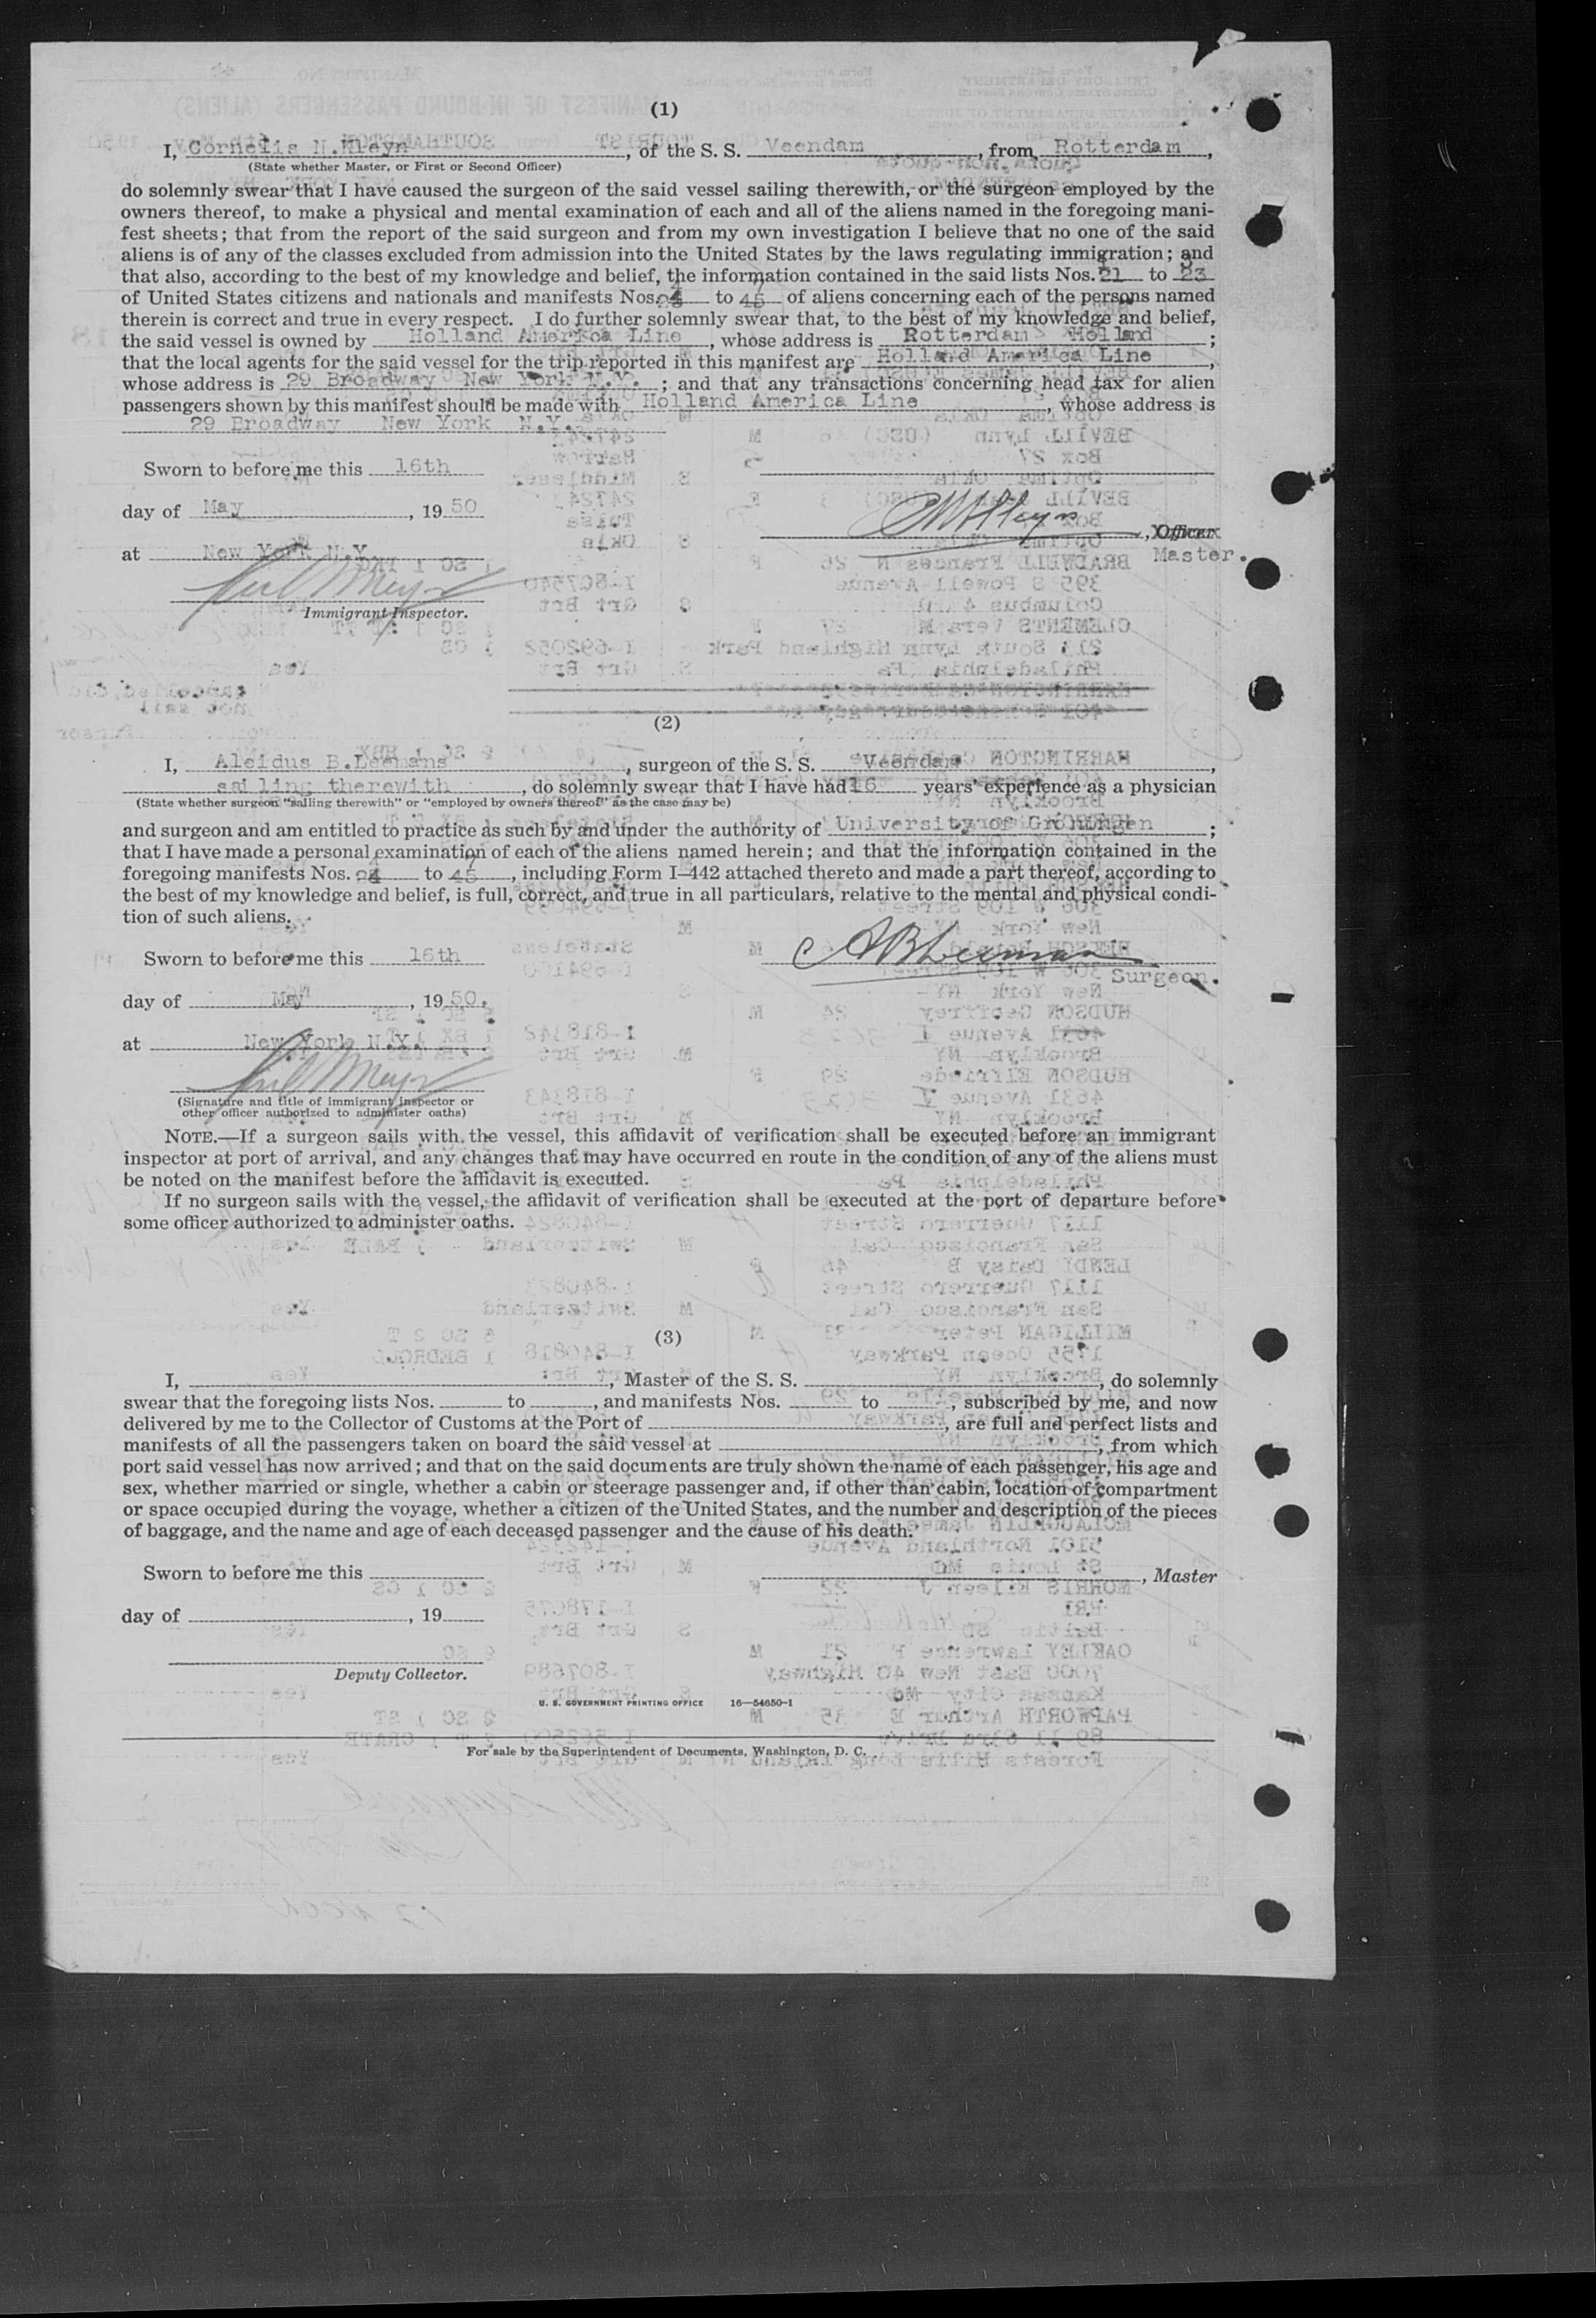 (1)
I, Cornelis N.Kleyn, of the S. S. Veendam, from Rotterdam,
(State whether Master, or First or Second Officer)
do solemnly swear that I have caused the surgeon of the said vessel sailing therewith, or the surgeon employed by the
owners thereof, to make a physical and mental examination of each and all of the aliens named in the foregoing mani-
fest sheets; that from the report of the said surgeon and from my own investigation I believe that no one of the said
aliens is of any of the classes excluded from admission into the United States by the laws regulating immigration; and
that also, according to the best of my knowledge and belief, the information contained in the said lists Nos. 21 to 23
of United States citizens and nationals and manifests Nos. to 45 of aliens concerning each of the persons named
therein is correct and true in every respect. I do further solemnly swear that, to the best of my knowledge and belief,
the said vessel is owned by Holland America Line, whose address is Rotterdam Holland;
that the local agents for the said vessel for the trip reported in this manifest are Holland America Line,
whose address is 29 Broadway New York N.Y.; and that any transactions concerning head tax for alien
passengers shown by this manifest should be made with Holland America Line, whose address is
29 Broadway New York N.Y.
Sworn to before me this 16th
day of May, 19 50
, Officer
at New York N.Y.
Master.
Immigrant Inspector.
(2)
I, Aleidus B.Leemans, surgeon of the S. S. Veendam,
sailing therewith, do solemnly swear that I have had 16 years' experience as a physician
(State whether surgeon "sailing therewith" or "employed by owners thereof" as the case may be)
and surgeon and am entitled to practice as such by and under the authority of University of Groningen;
that I have made a personal examination of each of the aliens named herein; and that the information contained in the
foregoing manifests Nos. to 45, including Form I-442 attached thereto and made a part thereof, according to
the best of my knowledge and belief, is full, correct, and true in all particulars, relative to the mental and physical condi-
tion of such aliens.
Sworn to before me this 16th
ABLeemans
Surgeon.
day of May, 19 50.
at New York N.Y.
(Signature and title of immigrant inspector or
other officer authorized to administer oaths)
NOTE.—If a surgeon sails with the vessel, this affidavit of verification shall be executed before an immigrant
inspector at port of arrival, and any changes that may have occurred en route in the condition of any of the aliens must
be noted on the manifest before the affidavit is executed.
If no surgeon sails with the vessel, the affidavit of verification shall be executed at the port of departure before
some officer authorized to administer oaths.
(3)
I, , Master of the S. S. , do solemnly
swear that the foregoing lists Nos. to , and manifests Nos. to , subscribed by me, and now
delivered by me to the Collector of Customs at the Port of , are full and perfect lists and
manifests of all the passengers taken on board the said vessel at , from which
port said vessel has now arrived; and that on the said documents are truly shown the name of each passenger, his age and
sex, whether married or single, whether a cabin or steerage passenger and, if other than cabin, location of compartment
or space occupied during the voyage, whether a citizen of the United States, and the number and description of the pieces
of baggage, and the name and age of each deceased passenger and the cause of his death.
Sworn to before me this
, Master
day of , 19
Deputy Collector.
U. S. GOVERNMENT PRINTING OFFICE 16—54650-1
For sale by the Superintendent of Documents, Washington, D. C.